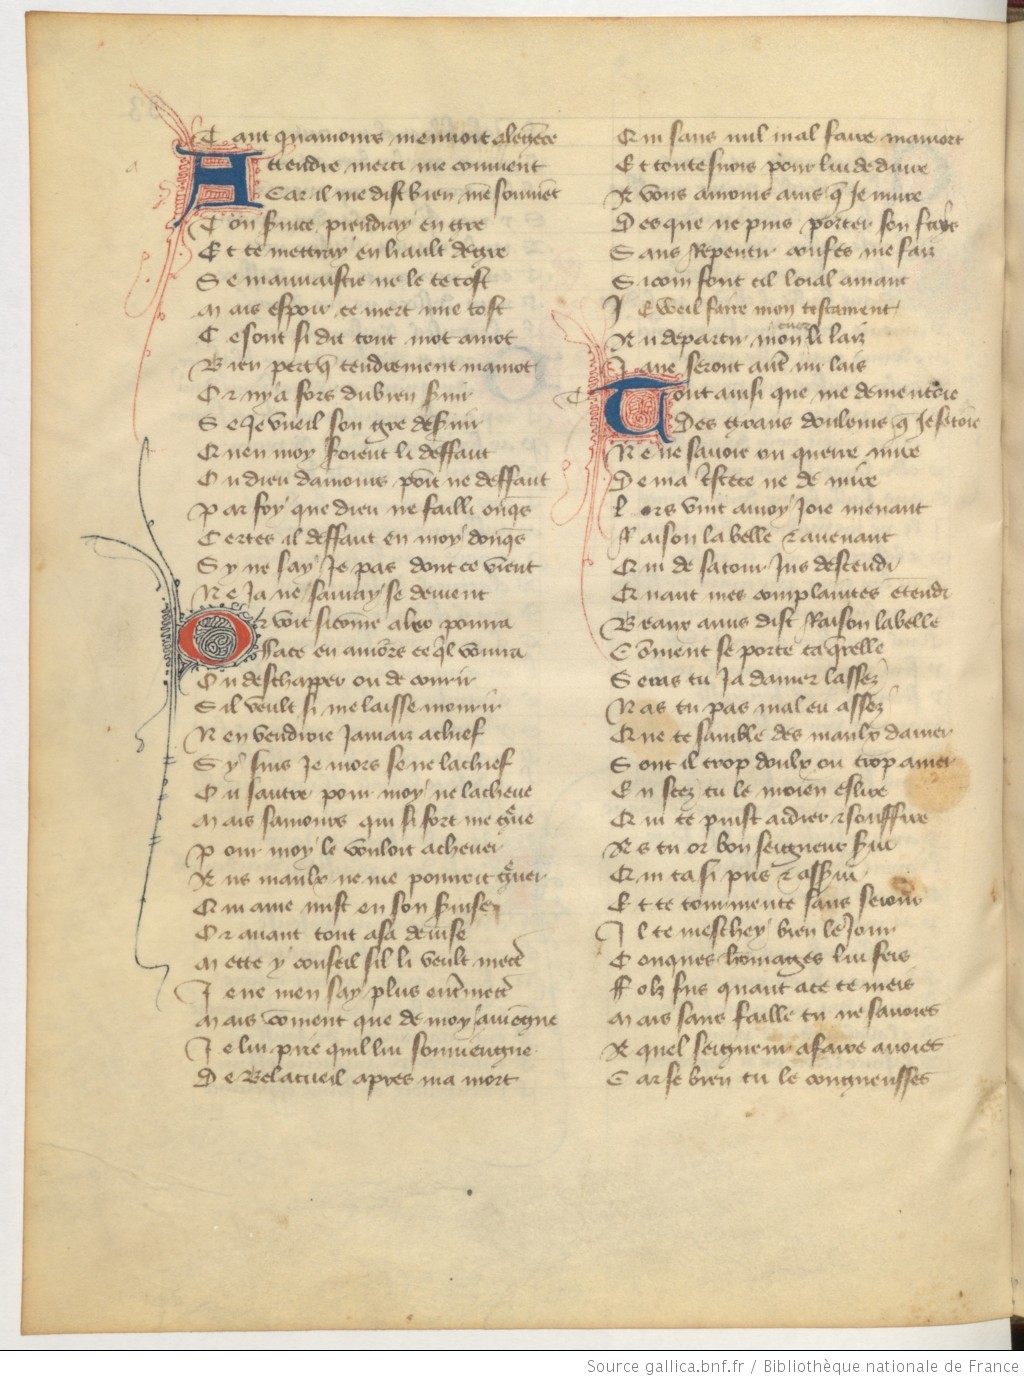 Tant quamours menuoit alegẽce
Attendre merci me conuient
Car il me dist bien me souuiẽt
Ton seruice prendray en gre
Et te mettray en hault degre
Se mauuaistie ne le te tost
Mais espoir ce niert mie tost
Ce sont si dit tout mot a mot
Bien pert q̃ tendrement mamot
Or ny a fors du bien seruir
Se Je vueil son gre deseruir
Quen moy soient li deffaut
Ou dieu damours point ne deffaut
Par foy que dieu ne failli onq̃s
Certes il deffaut en moy donq̃s
Sy ne say Je pas dont ce vient
Ne Ja ne sauray se deuient
Or voit si cõme aler pourra
Face en amours ce q̃l vourra
Ou deschapper ou de courir
Sil veult si me laisse mourir
Nen vendroie Jamaiz a chief
Sy suis Je mors se ne lachief
Ou sautre pour moy ne lacheue
Mais samours qui si fort me g̃ue
Pour moy le vouloit acheuer
Nus maulx ne me pourroit g̃uer
Qui aiue mist en son seruise
Or auant tout a sa deuise
Mette y conseil sil li veult mett̃
Je ne men say plus entremett̃
Mais cõment que de moy auiẽgne
Je lui prie quil lui souuiengne
De Belacueil apres ma mort
Qui sans nul mal faire ma mort
Et toutesuois pour lui deduire
A vous amours ains q̃ Je muire
Des que ne puis porter son faiz
Sans Repentir confes me faiz
Si com font cil loial amant
Je weil faire mon testament
Au departir mon cuer li laiz
Ja ne seront aut̃ mi lais
Tout ainsi que me dementoie
Des grans douleurs q̃ Je sentoie
Ne ne sauoie ou querre mire
De ma tristece ne de mire
Lors vint a moy Joie menant
Raison la belle & auenant
Qui de sa tour Jus descendi
Quant mes complaintes entendi
Beaux amis dist Raison la belle
Cõment se porte ta q̃relle
Seras tu Ja damer lassez
Nas tu pas mal eu assez
Que te samble des maulx damer
Sont il trop doulx ou trop amer
En scez tu le moien eslire
Qui te puist aidier & souffire
As tu or bon seigneur serui
Qui ta si pris & asserui
Et te tourmente sans seiour
Il te meschey bien le Jour
Conques homages lui feis
Folz fus quant a ce te meis
Mais sans faille tu ne sauoies
A quel seigneur a faire auoies
Car se bien tu le congneusses
Source gallica.bnf.fr / Bibliothèque nationale de France